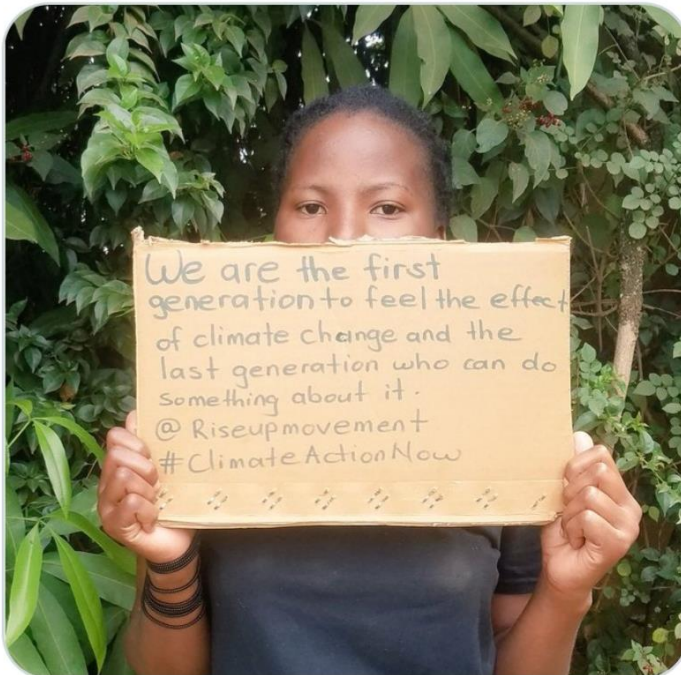 We are the first
generation to feel the effect
of climate change and the
last generation who can do
something about it.
@ Riseupmovement
#ClimateActionNow